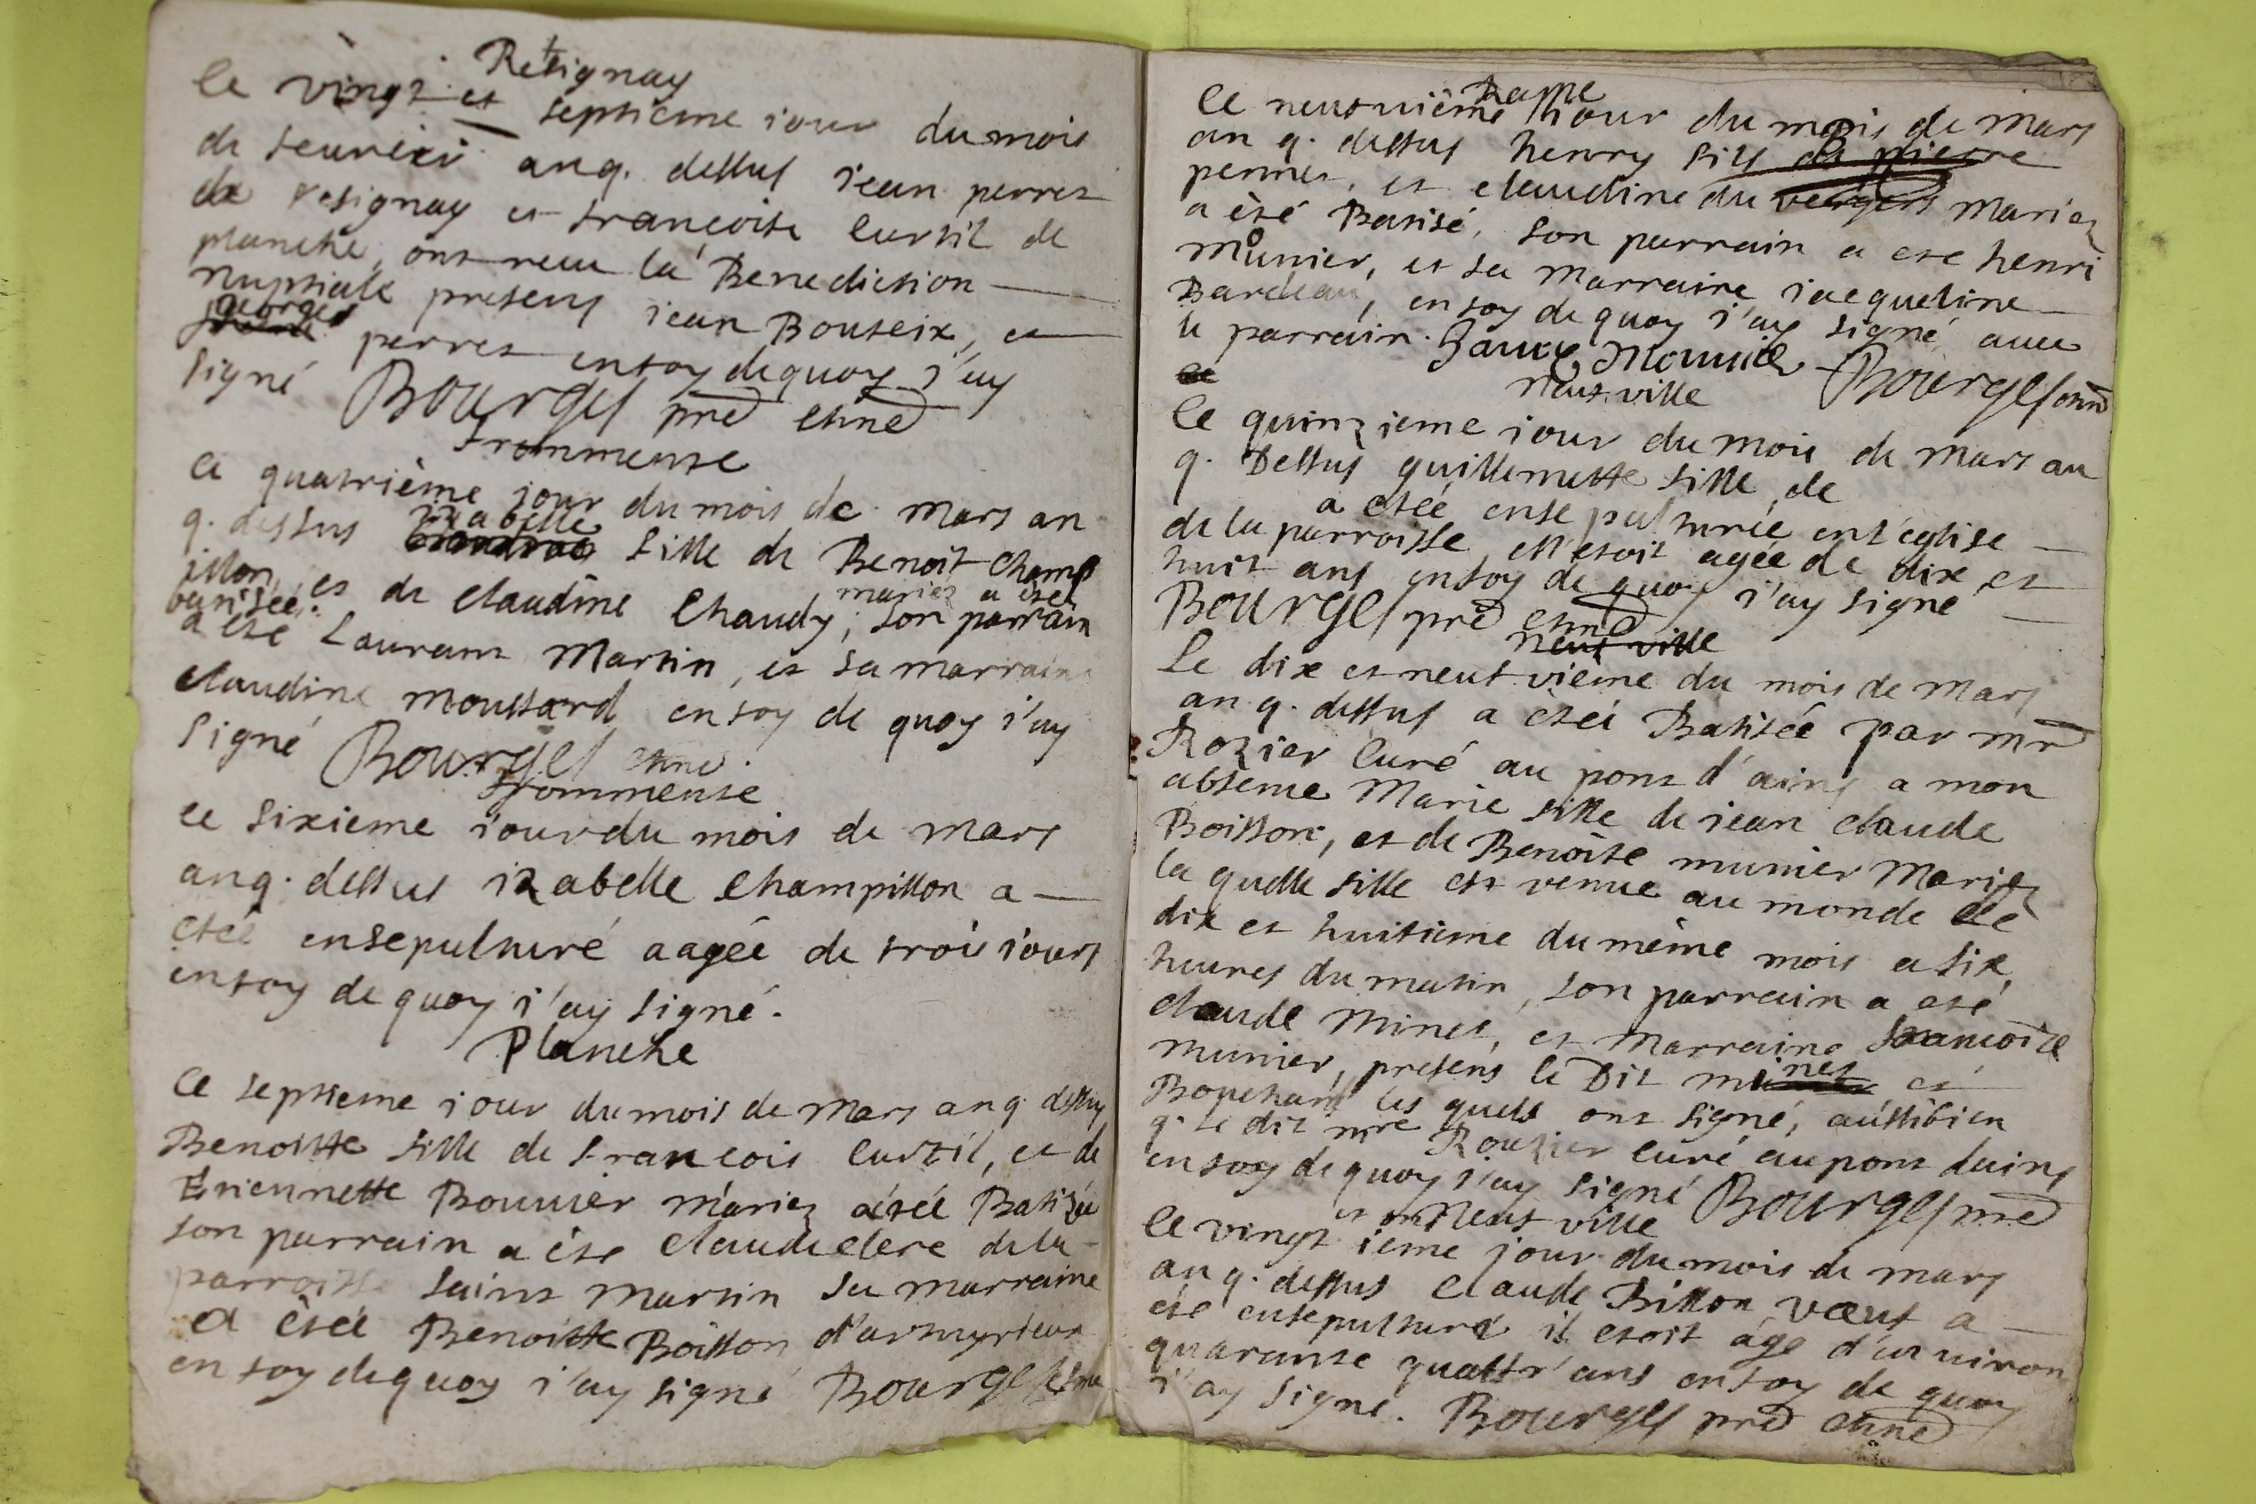 Resignay
le vingt et septieme iour du mois
de feurier an q. dessus iean perret
de resignay et francoise curtil de
planche, ont receu la Benediction
nuptiale presens iean Bouteix, et
georges perret en foy de quoy i'ay
signé Bourges pre
frommente
ce quatrième jour du mois de mars an
q. dessus izabelle fille de Benoit Champ
illon, et de claudine Chaudy, mariez a etée
batisée. son parrain
a eté Laurant Martin, et sa marraine
claudine moussard en foy de quoy i'ay
signé Bourges
frommente
ce sixieme iour du mois de mars
an q. dessus izabelle Champillon a
etée ensepulturé aagée de trois iours
en foy de quoy i'ay signé.
Planche
Ce septieme iour du mois de mars an q. dessus
Benoitte fille de francois curtil, et de
Etiennette Bouuier mariez a étée Batizée
son parrain a ète claude clere de la
parroisse saint martin sa marraine
a étée Benoitte Boisson
en foy de quoy i'ay signé Bourges
Rappe
Ce neufuième iour du mois de mars
an q. dessus henry fils de pierre
pernet, et claudine du vergers mariez
a èté Batisé, son parrain a ete henri
mounier, et sa marraine iacqueline
Bardeau, en foy de quoy i'ay signé auec
le parrain. Mounier Bourges
neuf ville
Ce quinzieme iour du mois de mars an
q. Dessus guillemette fille de
a etée ensepulturée en l'eglise
de la parroisse, ell'etoit agée de dix et
huit ans en foy de quoy i'ay signé
Bourges pre
neuf ville
Le dix et neuf vième du mois de mars
an q. dessus a etéé Batisée par mr
Rozier Curé au pont d'ains a mon
absence Marie fille de iean claude
Boisson, et de Benoite munier Mariez
la quelle fille est venue au monde le
dix et huitieme du même mois a six
heures du matin, son parrain a eté
claude minet, et marraine francoise
munier, presens le Dit minet et
Bouchard les quels ont signé, aussibien
q. le dit mre Rouzier curé au pont dains
en foy de quoy i'ay signé Bourges pre
neuf ville
Ce vingt et un ieme jour du mois de mars
an q. dessus Claude Billon voeuf a
eté ensepulturé il etoit âge d'anuiron
quarante quattr' ans en foy de quoy
i'ay signé. Bourges pre